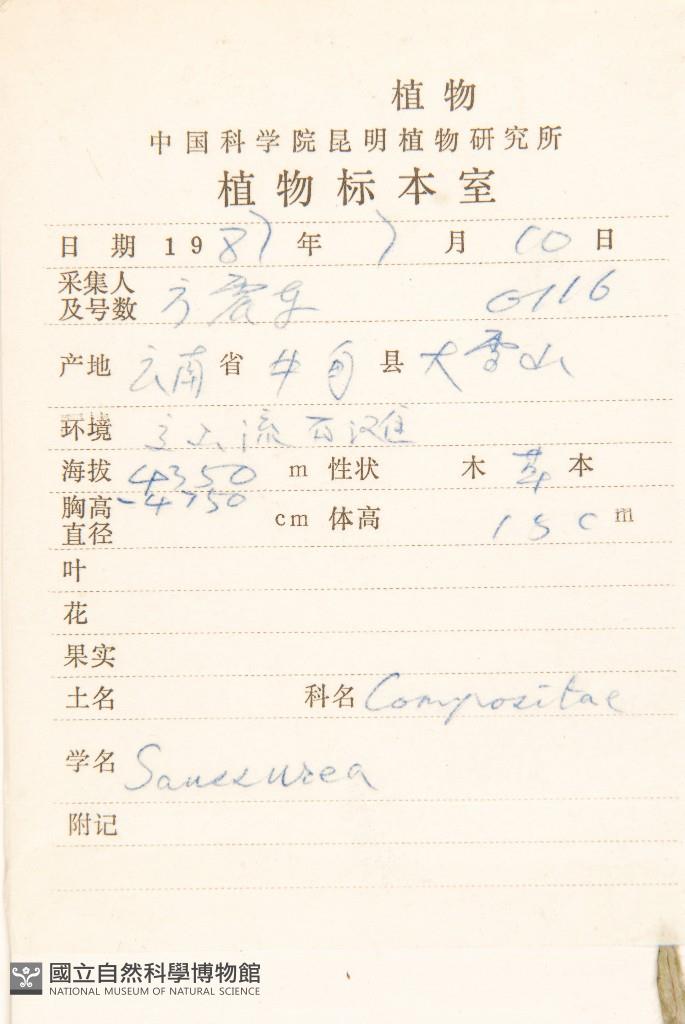 植物
中国科学院昆明植物研究所
植物标本室
日 期 1987年 7月 10日
采集人
及号数 方震东 0116
产地 云南省 中甸县 大雪山
环境 高山流石滩
海拔 4350 m 性状 木草本
-4750
胸高
直径 cm 体高 15cm
叶
花
果实
土名 科名 Compositae
学名 Saussurea
附记
國立自然科學博物館
NATIONAL MUSEUM OF NATURAL SCIENCE